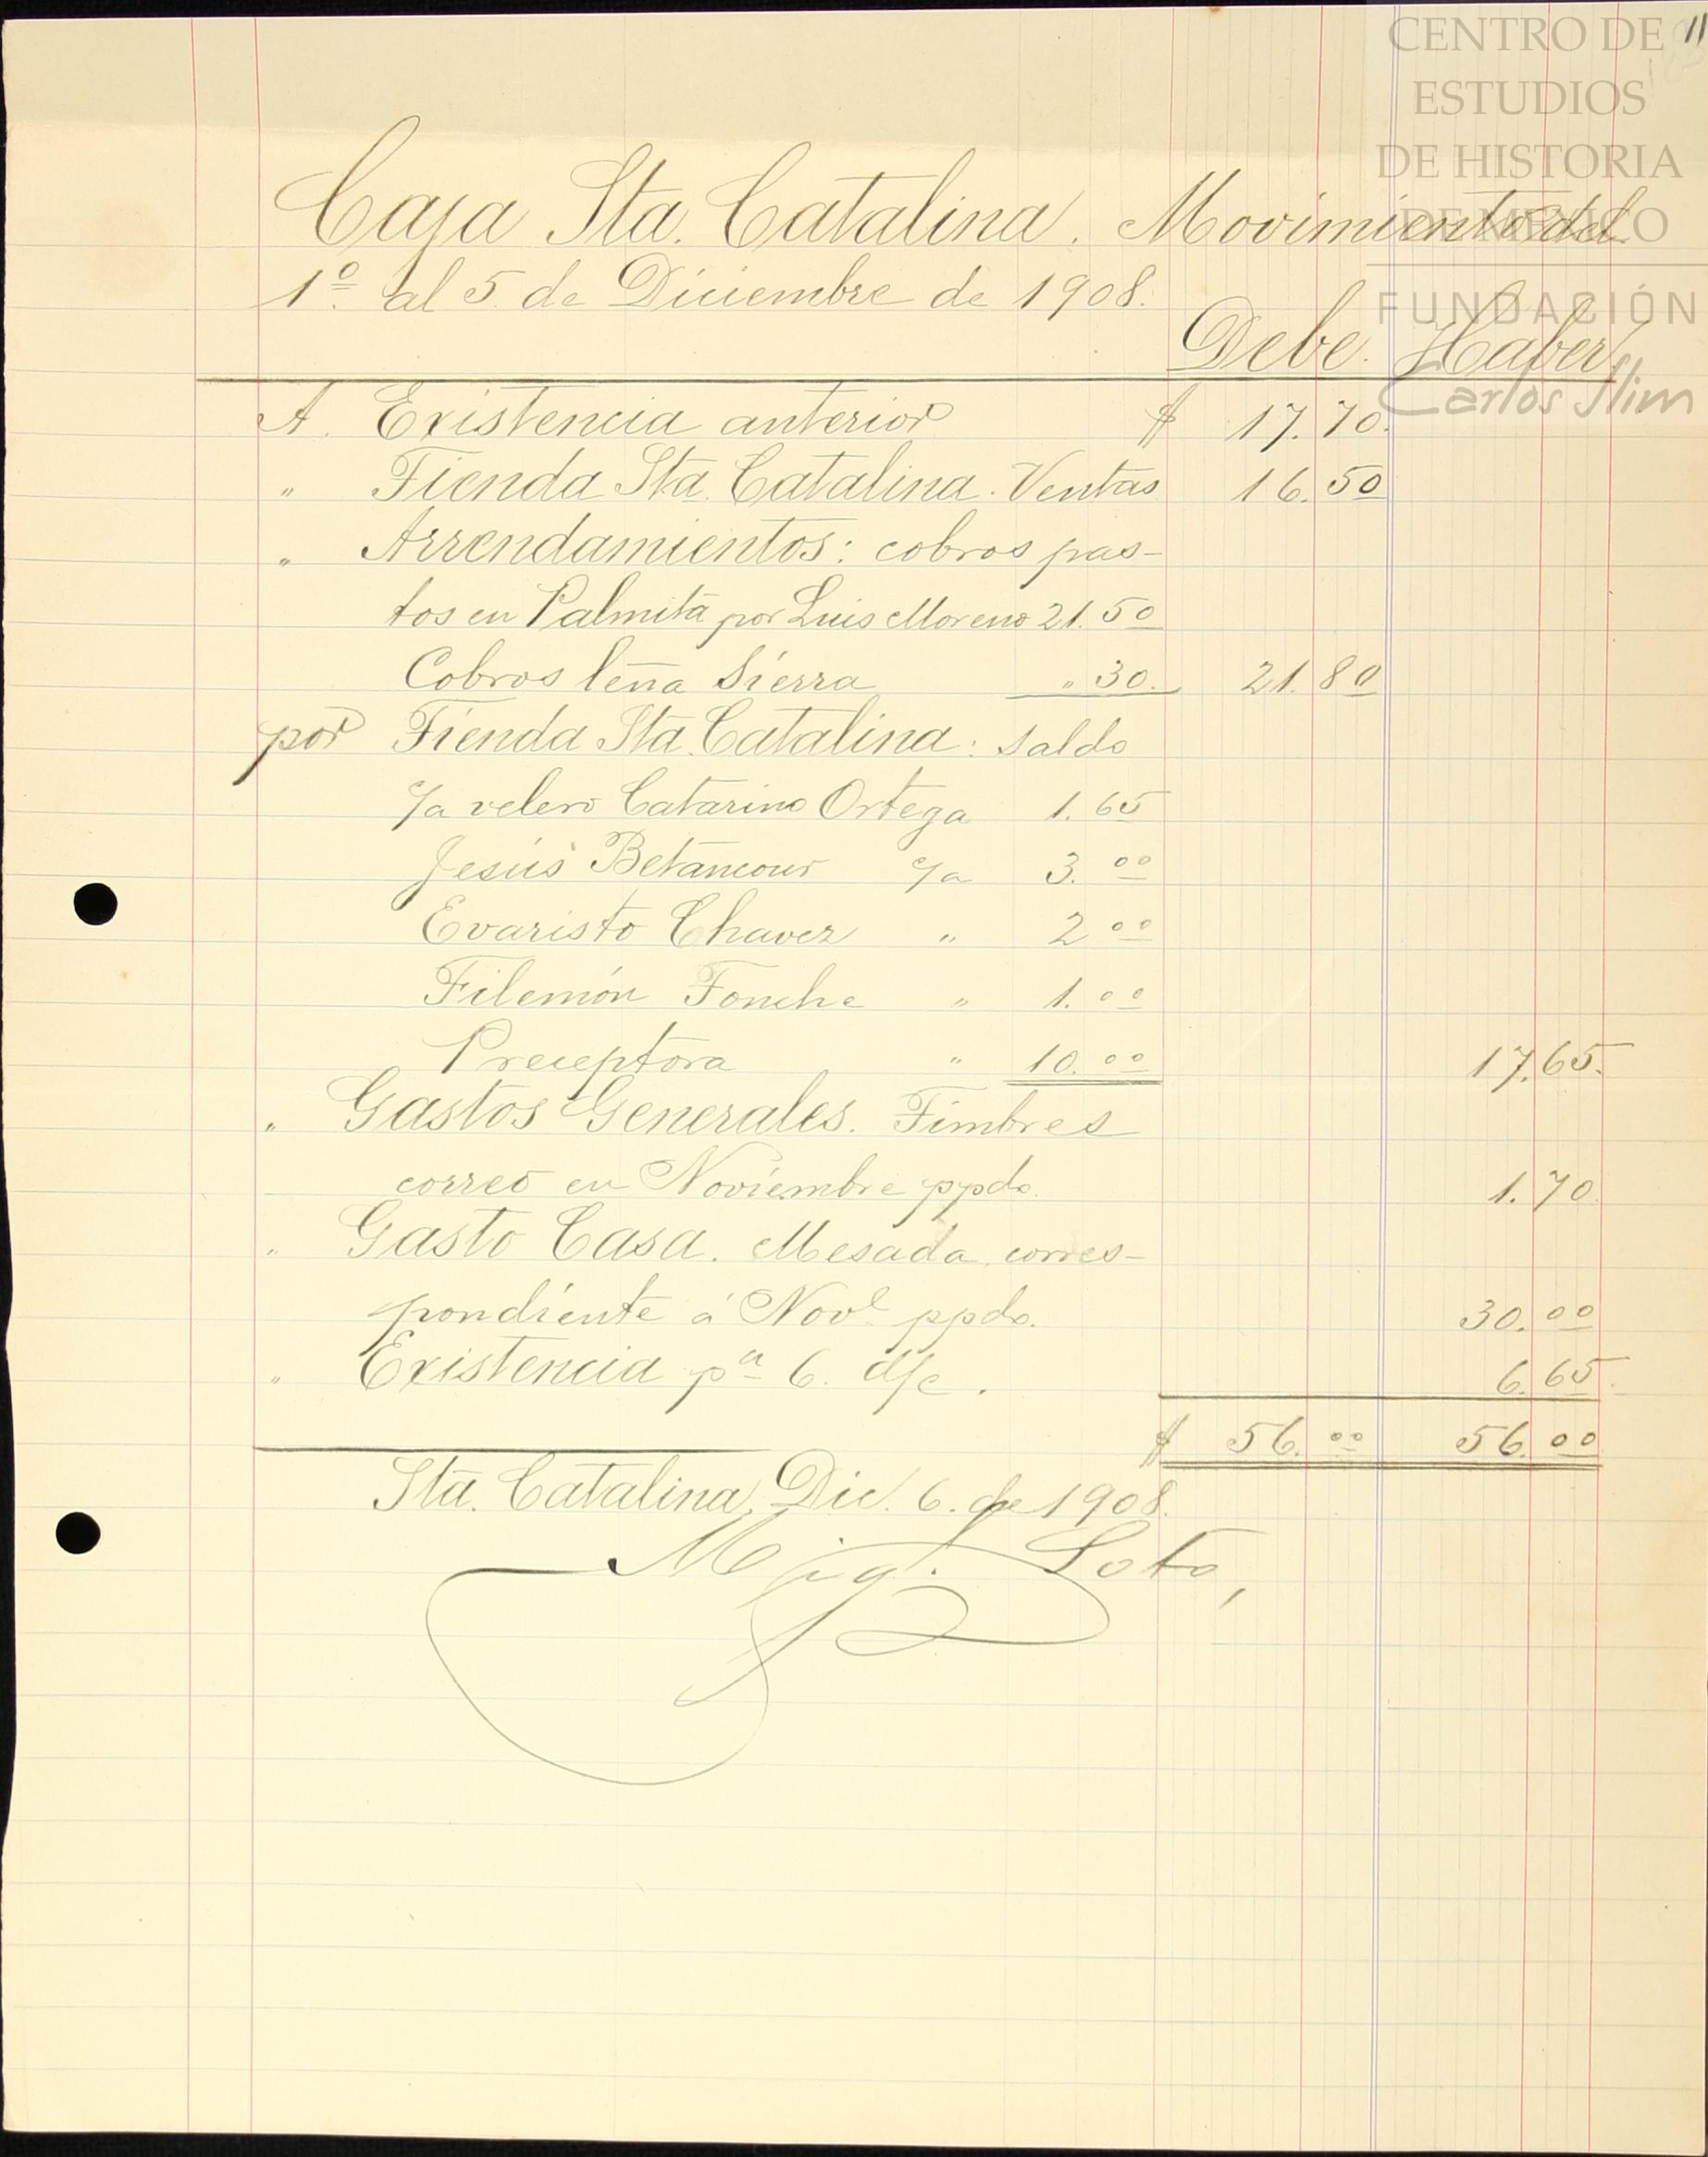 CENTRO DE
ESTUDIOS
DE HISTORIA
DE MÉXICO
FUNDACIÓN
Carlos Slim
11
Caja Sta. Catalina. Movimiento del
1º al 5 de Diciembre de 1908.
Debe. Haber
A. Existencia anterior $ 17.70.
" Tienda Sta. Catalina. Ventas 16.50
" Arrendamientos: cobros pas-
tos en Palmita por Luis Moreno 21.50
Cobros leña Sierra " 30. 21.80
por Tienda Sta. Catalina: saldo
c/a velero Catarino Ortega 1.65
Jesús Betancour c/a 3.00
Evaristo Chavez " 2 00
Filemón Fonche " 1.00
Preceptora " 10.00 17.65.
" Gastos Generales. Timbres
correo en Noviembre ppdo. 1.70
" Gasto Casa. Mesada corres-
pondiente á Nove ppdo. 30.00
" Existencia pa 6. d/c. 6.65.
$ 56.00 56.00
Sta. Catalina, Dic. 6. de 1908.
Mig. Soto,